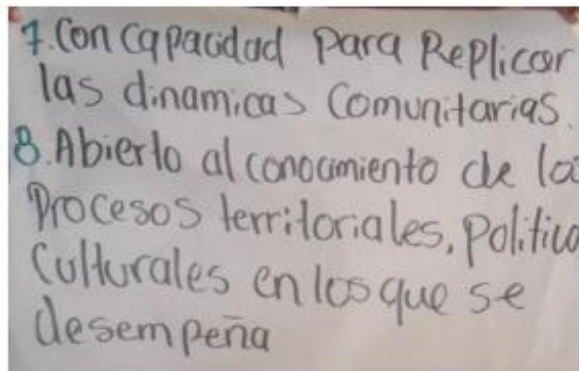 7. Con capacidad para Replicar
las dinamicas Comunitarias.
8. Abierto al conocimiento de lo
Procesos territoriales, Politico
Culturales en los que se
desempeña